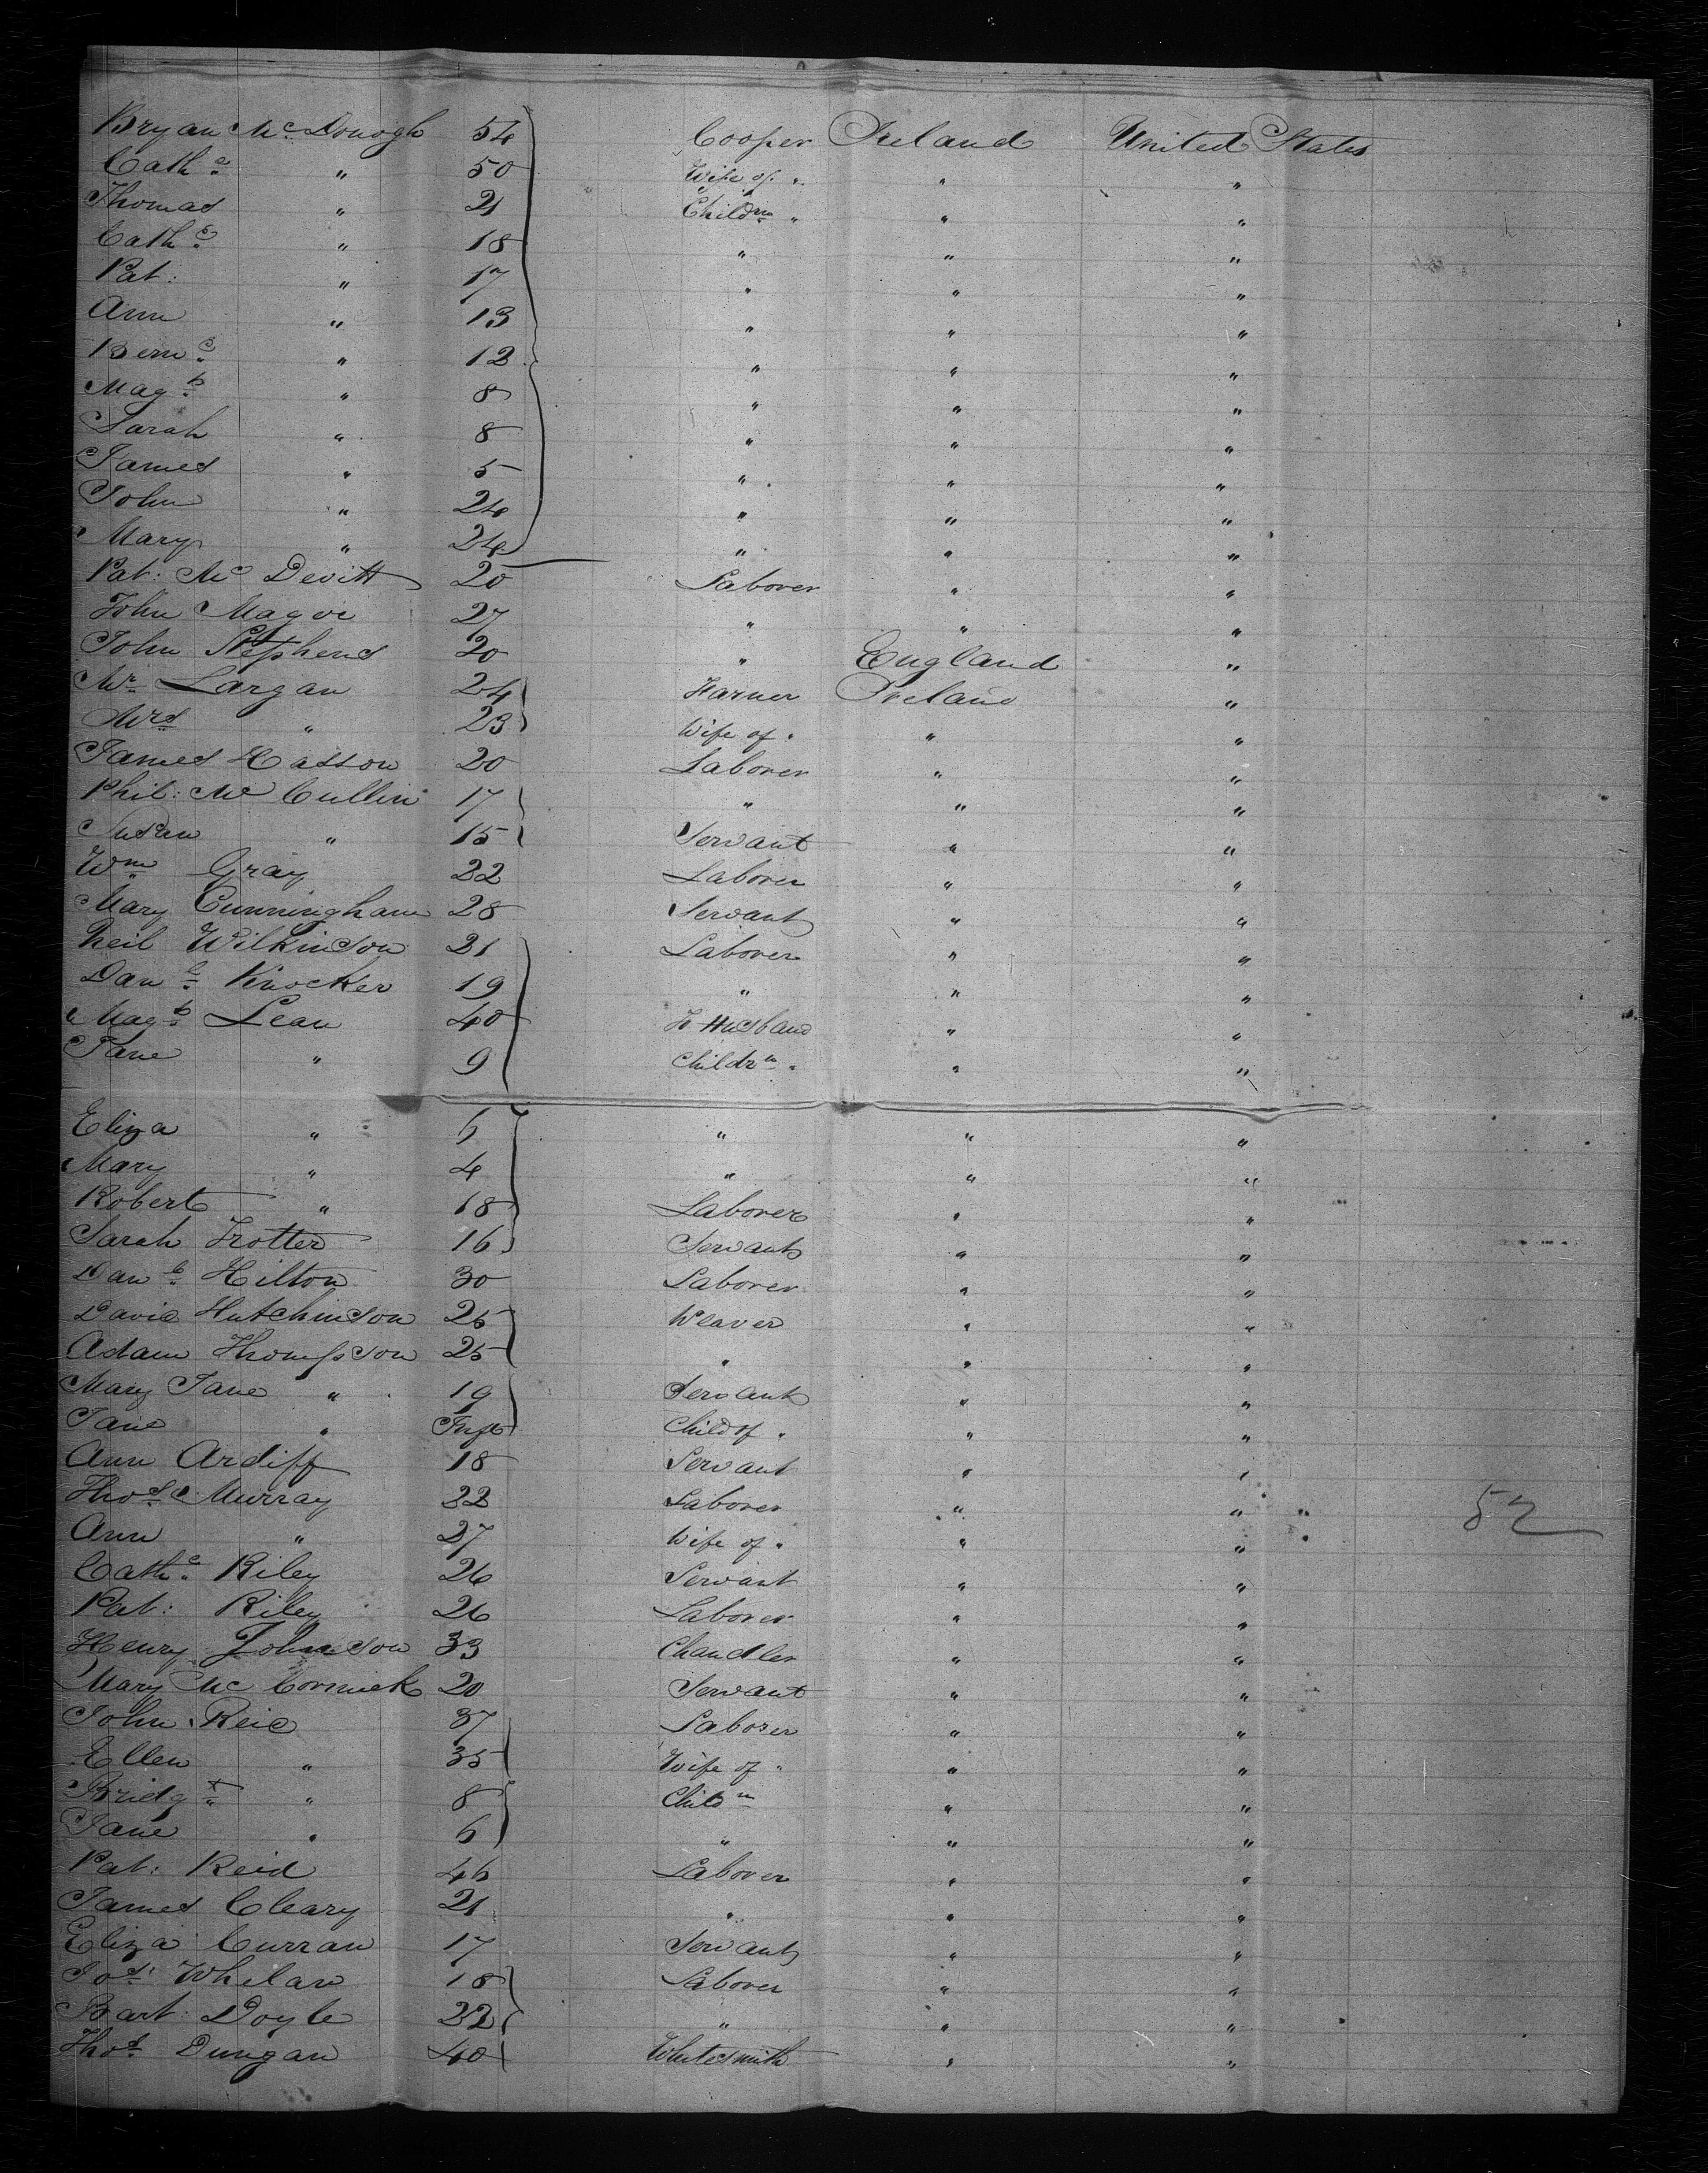 Bryan McDonogh 54 Cooper Ireland United States
Cathe " 50 Wife of " " "
Thomas " 21 Childrn " " "
Cathe " 18 " " "
Pat: " 17 " " "
Ann " 13 " " "
Bernd " 12 " " "
Magt " 8 " " "
Sarah " 8 " " "
James " 5 " " "
John " 24 " " "
Mary " 24 " " "
Pat: McDevitt 20 Laborer " "
John Magoe 27 " " "
John Stephens 20 " England "
Mr Largan 24 Farmer Ireland "
Mrs " 23 Wife of " " "
James Hasson 20 Laborer " "
Phil: McCullin 17 " " "
Susan " 15 Servant " "
Wm Gray 22 Laborer " "
Mary Cunningham 28 Servant " "
Neil Wilkinson 21 Laborer " "
Danl Knocker 19 " " "
Magt Lean 40 To Husband " "
Jane " 9 Childrn " " "
Eliza " 6 " " "
Mary " 4 " " "
Robert " 18 Laborer " "
Sarah Trotter 16 Servant " "
Danl Hilton 30 Laborer " "
David Hutchinson 25 Weaver " "
Adam Thompson 25 " " "
Mary Jane " 19 Servant " "
Jane " Inft Child of " " "
Ann Ardiff 18 Servant " "
Thos Murray 22 Laborer " " " 52
Ann " 27 Wife of " " "
Cathe Riley 26 Servant " "
Pat: Riley 26 Laborer " "
Henry Johnson 33 Chandler " "
Mary McCormick 20 Servant " "
John Reid 37 Laborer " "
Ellen " 35 Wife of " " "
Bridgt " 8 Childn " "
Jane " 6 " " "
Pat: Reid 46 Laborer " "
James Cleary 21 " " "
Eliza Curran 17 Servant " "
Jos: Whelan 18 Laborer " "
Bart: Doyle 22 " " "
Thos Dungan 40 Whitesmith " "